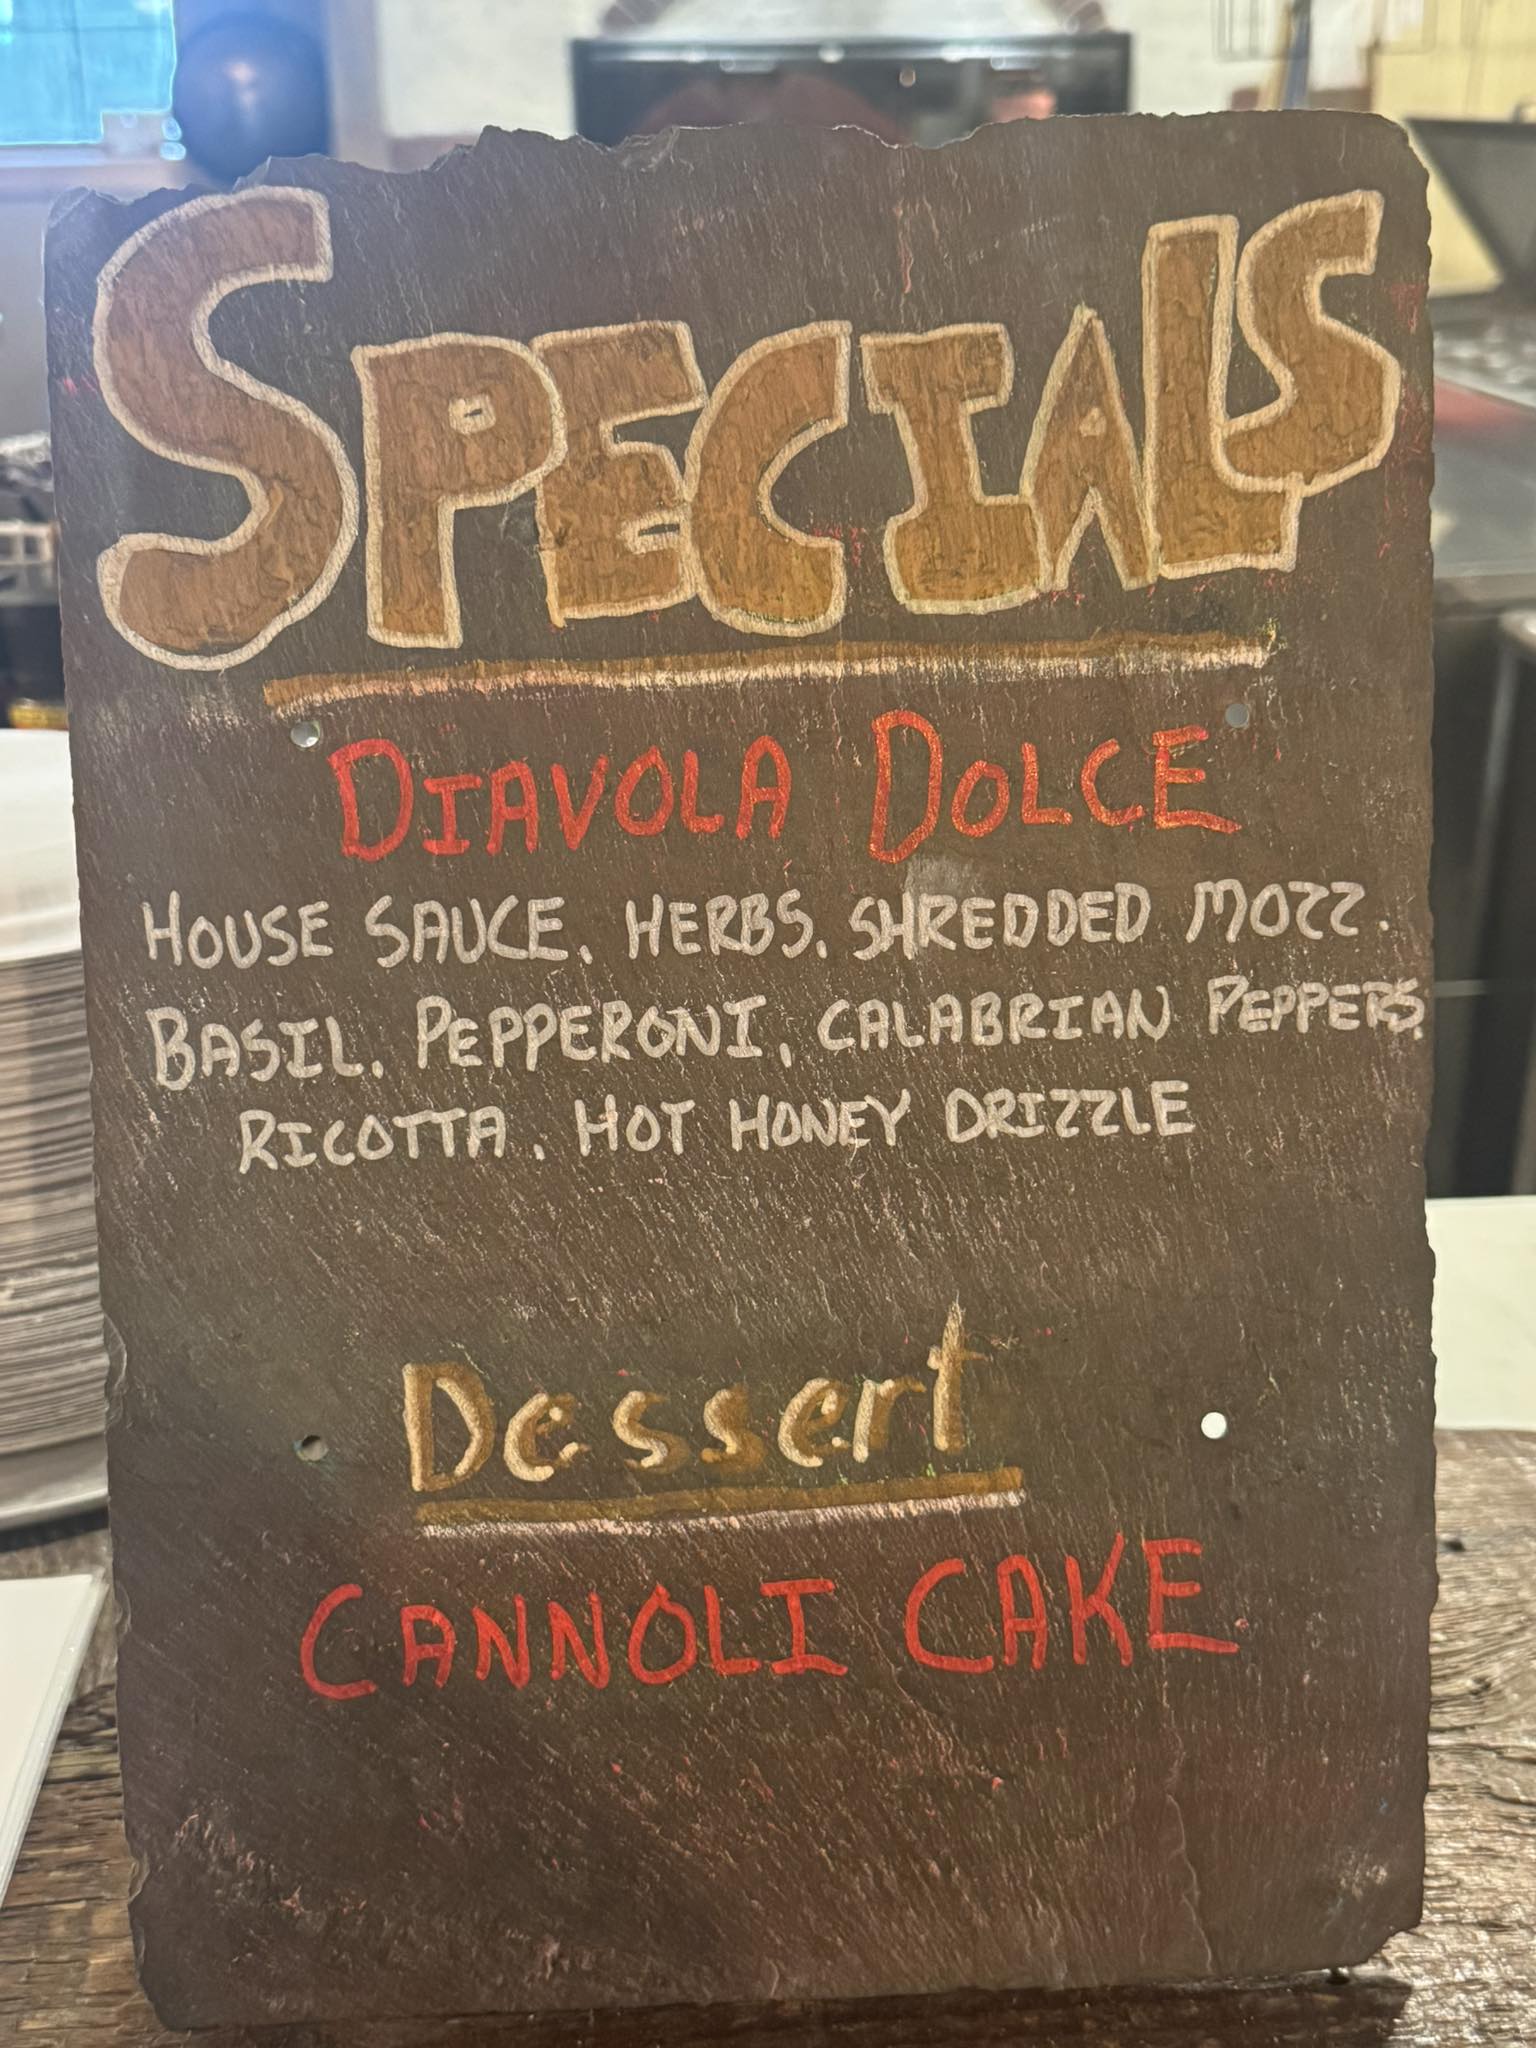 SPECIALS
DIAVOLA DOLCE
HOUSE SAUCE, HERBS, SHREDDED MOZZ.
BASIL, PEPPERONI, CALABRIAN PEPPERS,
RICOTTA, HOT HONEY DRIZZLE
Dessert
CANNOLI CAKE